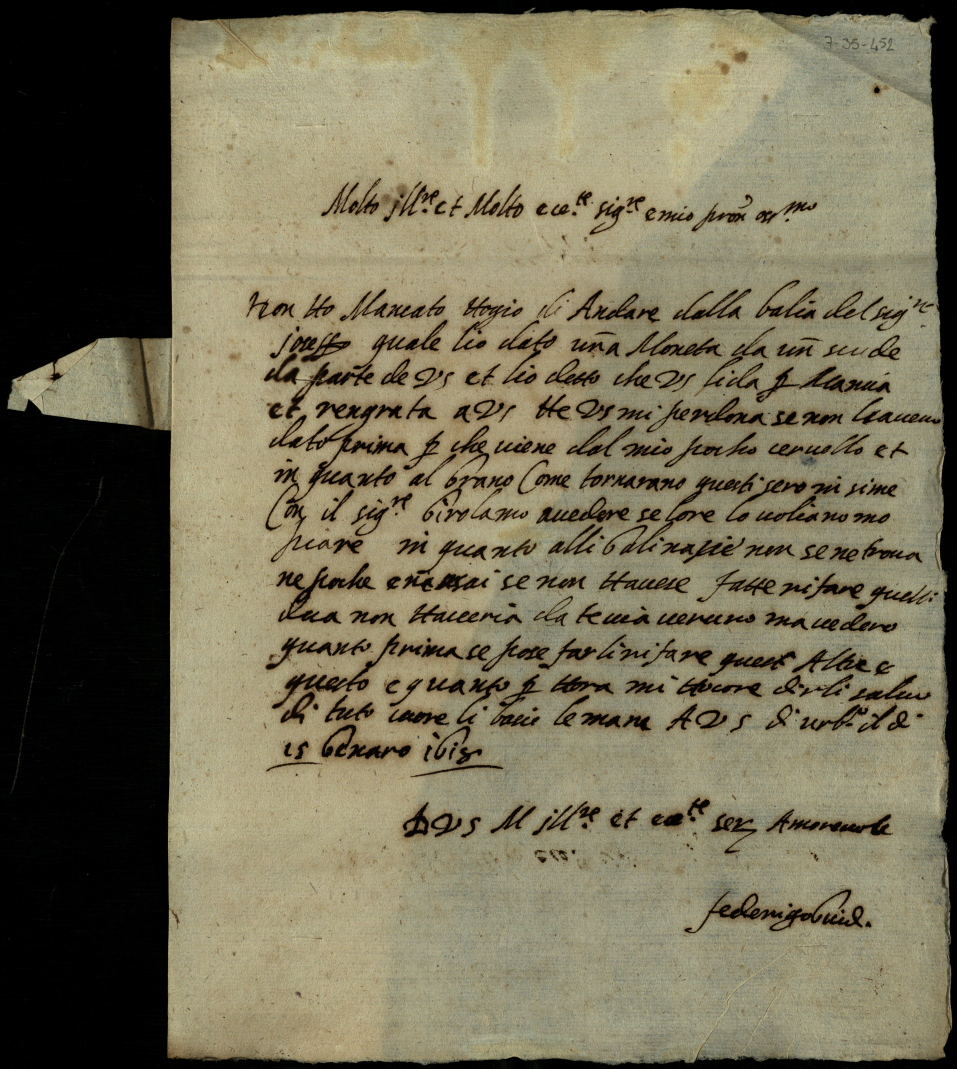 7-35-452
Molto jll.re et Molto ecc.te sig.re e mio pron oss.mo
Non Ho Mancato Hogio di Andare dalla balia del sig.re
joseffo quale lio dato una Moneta da un scude
da parte de VS et lio detto che VS lida p mancia
et rengrata a VS He VS mi perdona se non laveva
dato prima p che viene dal mio pocho cervello et
in quanto al Grano Come tornarano questi sero in sime
Con il sig.re Girolamo a vedere se lore lo voliano
piare in quanto alli Galinazie non se ne trova
ne poche e se non Havese fatte rifare quelli
dua non Haveria da te via veruno ma vedero
quanto prima se pose farli rifare quest Altre e
questo e quanto p Hora mi Hocore dirli
di tuto cuore li bacio le mane A VS di urb.o il di
15 Genaro 1618
D VS M jll.re et ecc.te ser Amorevole
federigo Guid.